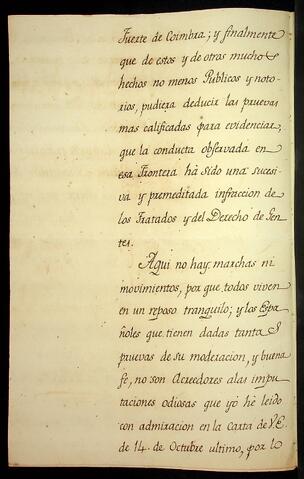 Fuerte de Coimbra; y finalmente
que de estos y de otros muchos
hechos no menos Públicos y noto-
rios, pudiera deducir las pruevas
mas calificadas para evidenciar,
que la conducta observada en
esa Frontera há Sido una sucesi-
vá y premeditada infraccion de
los Tratados y del Derecho de Gen-
tes.
Aqui no hay marchas ni
movimientos, por que todos viven
en un reposo tranquilo; y los Espa-
ñoles que tienen dadas tantas
pruevas de su moderacion, y buena
fe, no son Acreedores alas impu-
taciones odiosas que yó hé leido
con admiracion en la Carta de V.E.
de 14. de Octubre ultimo, por lo